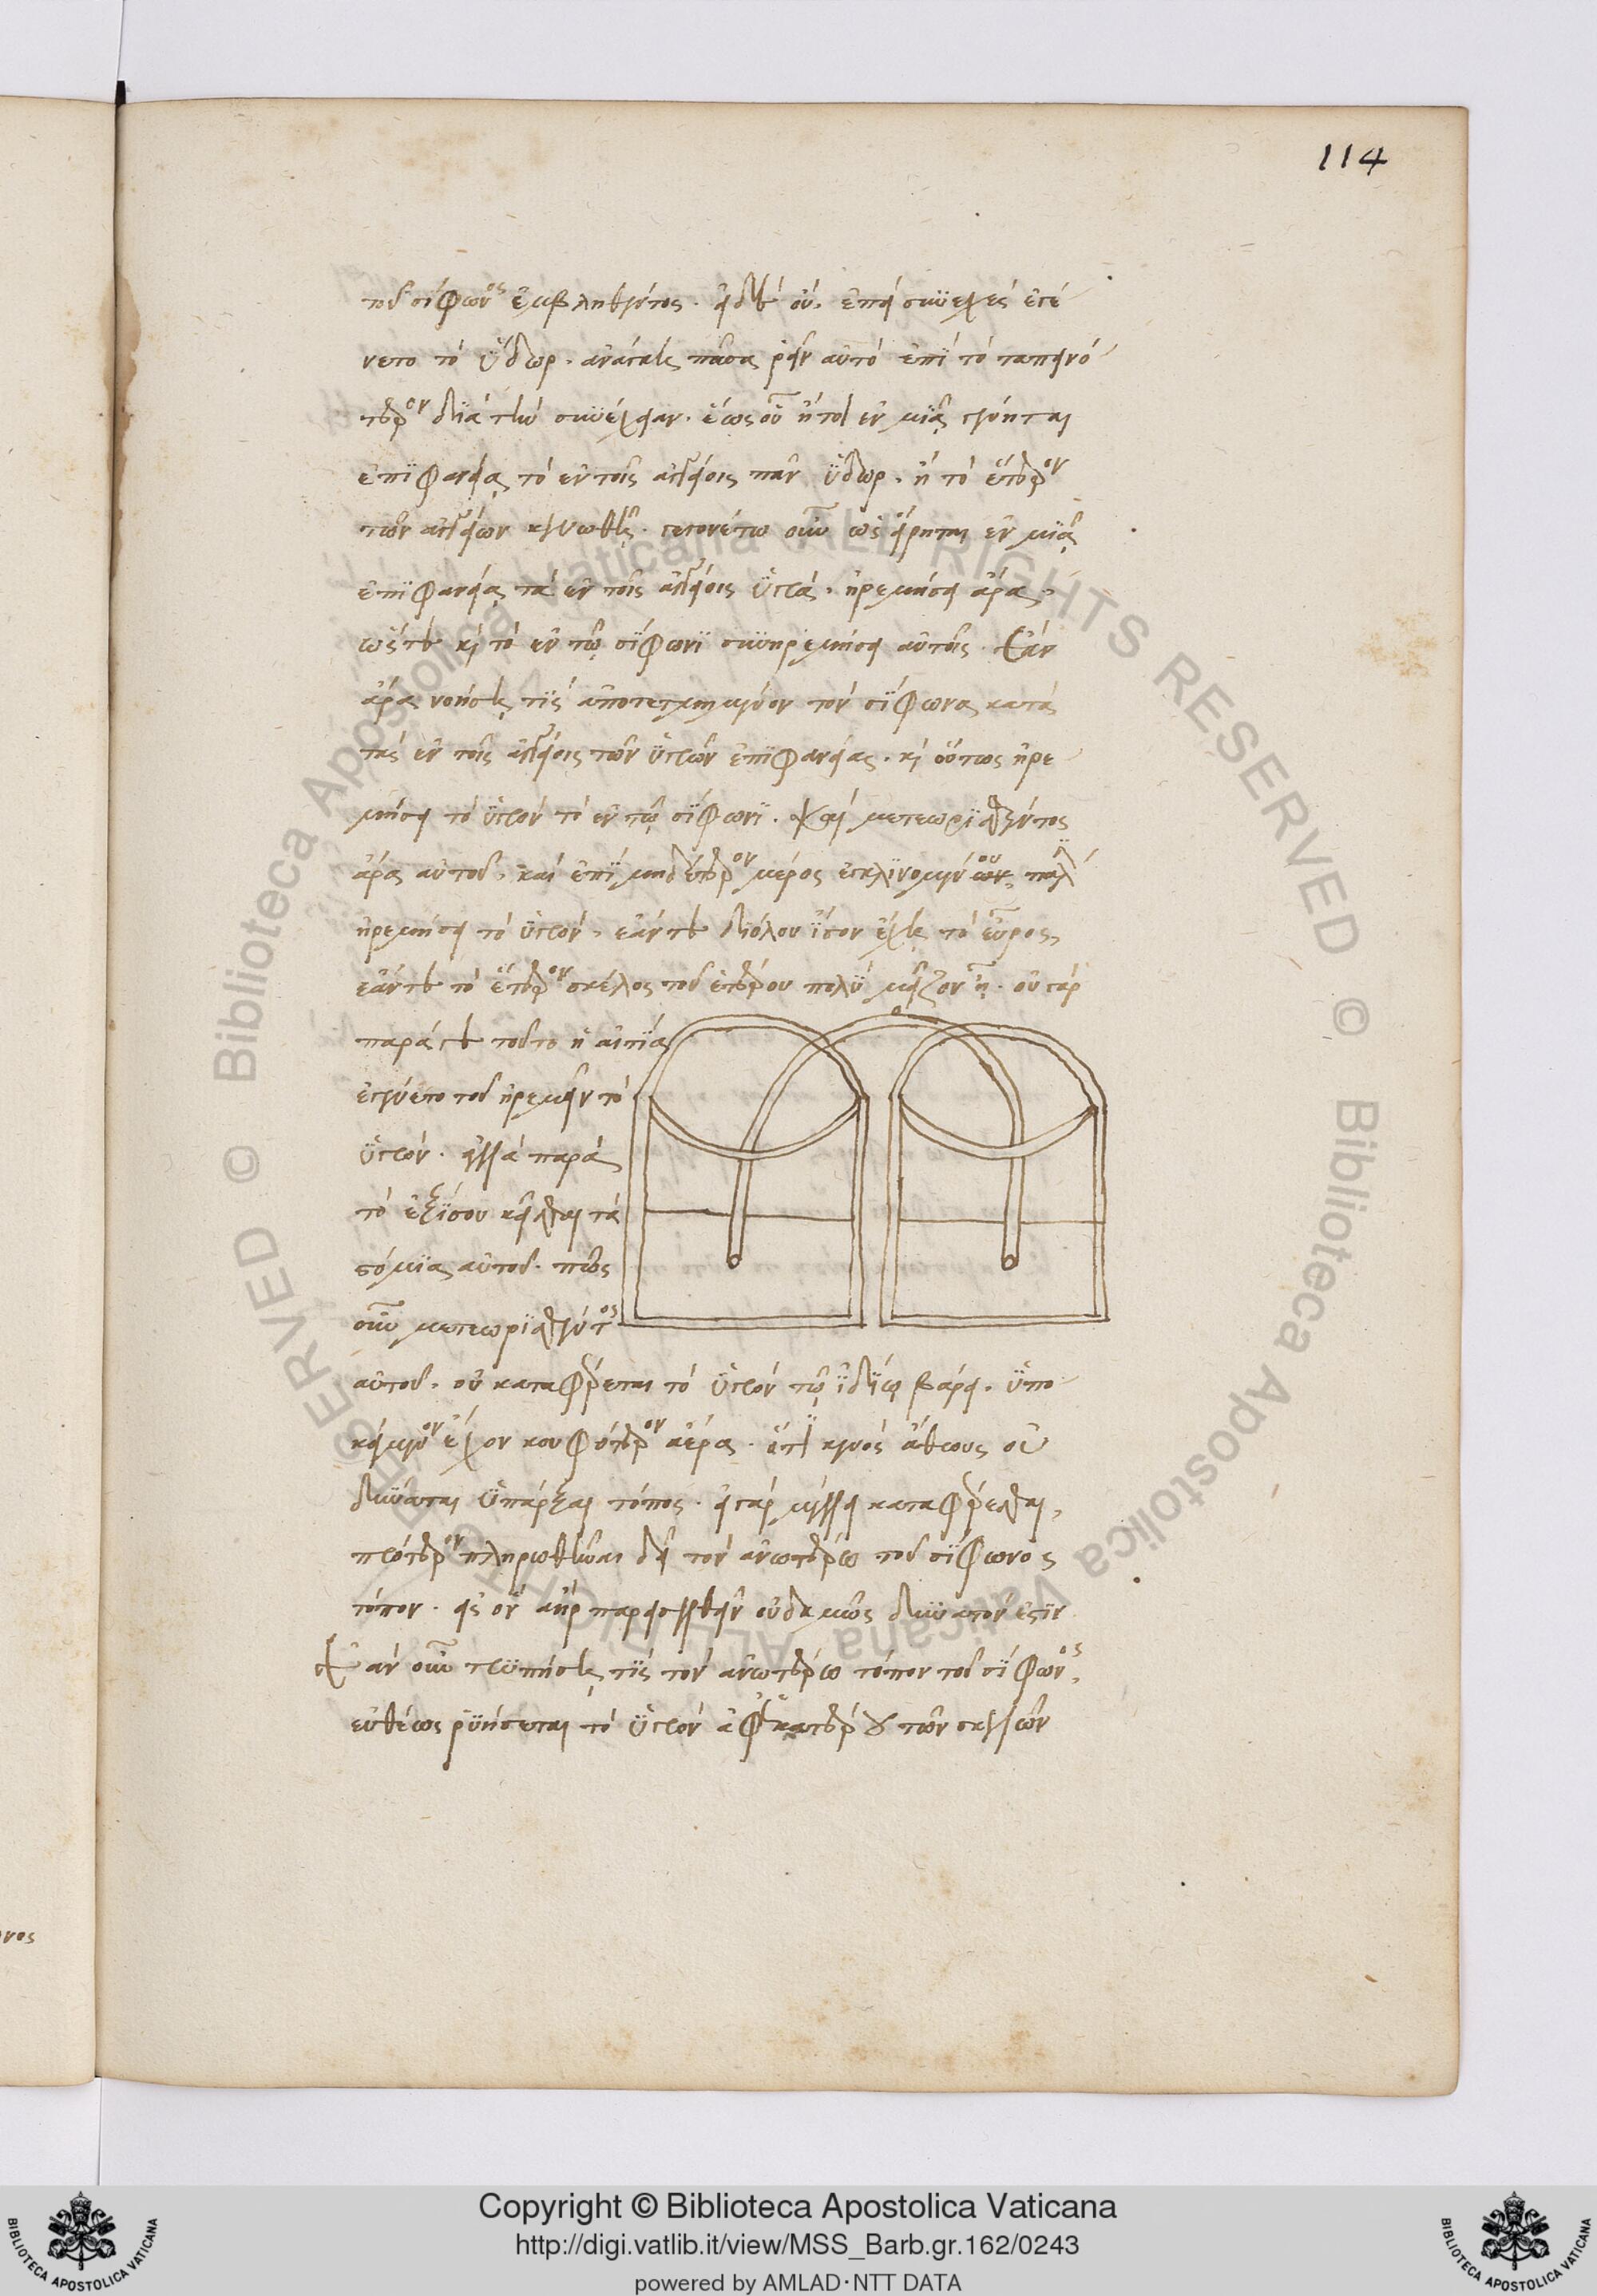 114
τοῦ σίφωνος ἐμβληθέντος. εἰ δὲ οὔ. ἐπεὶ συνεχὲς ἐγέ
νετο τὸ ὕδωρ. ἀνάγκη πᾶσα ῥεῖν αὐτὸ ἐπὶ τὸ ταπεινό
τερον διὰ τὴν συνέχειαν. ἕως οὗ ἤτοι ἐν μιᾷ γένηται
ἐπιφανείᾳ τὸ ἐν τοῖς ἀγγείοις πᾶν ὕδωρ. ἢ τὸ ἕτερον
τῶν ἀγγείων κενωθῇ. γεγονέτω οὖν ὡς εἴρηται ἐν μιᾷ
ἐπιφανείᾳ τὰ ἐν τοῖς ἀγγείοις ὑγρά. ἠρεμήσει ἄρα.
ὥστε καὶ τὸ ἐν τῷ σίφωνι συνηρεμήσει αὐτοῖς. Ἐὰν
ἄρα νοήσῃ τις ἀποτετμημένον τὸν σίφωνα κατὰ
τὰς ἐν τοῖς ἀγγείοις τῶν ὑγρῶν ἐπιφανείας. καὶ οὕτως ἠρε
μήσει τὸ ὑγρὸν τὸ ἐν τῷ σίφωνι. καὶ μετεωρισθέντος
ἄρα αὐτοῦ. καὶ ἐπὶ μηδέτερον μέρος ἐγκλινομένου. πάλι
ἠρεμήσει τὸ ὑγρόν. ἐάν τε διόλου ἴσον ἔχῃ τὸ εὖρος,
ἐάν τε τὸ ἕτερον σκέλος τοῦ ἑτέρου πολὺ μεῖζον ᾖ. οὐ γὰρ
παρά γε τοῦτο ἡ αἰτία
ἐγένετο τοῦ ἠρεμεῖν τὸ
ὑγρόν. ἀλλὰ παρὰ
τὸ ἐξίσου κεῖσθαι τὰ
στόμια αὐτοῦ. πῶς
οὖν μετεωρισθέντος
αὐτοῦ. οὐ καταφέρεται τὸ ὑγρὸν τῷ ἰδίῳ βάρει. ὑπο
κείμενον ἔχον κουφότερον ἀέρα. ὅτι κενὸς ἄθρους οὐ
δύναται ὑπάρξαι τόπος. εἰ γὰρ μέλλει καταφέρεσθαι,
πρότερον πληρωθῆναι δεῖ τὸν ἀνωτέρω τοῦ σίφωνος
τόπον. εἰς ὃν ἀὴρ παρεισελθεῖν οὐδαμῶς δυνατόν ἐστιν
Ἐὰν οὖν τρυπήσῃ τις τὸν ἀνωτέρω τόπον τοῦ σίφωνος,
εὐθέως ῥυήσεται τὸ ὑγρὸν ἀφ' ἑκατέρου τῶν σκελῶν
νος
Copyright © Biblioteca Apostolica Vaticana
http://digi.vatlib.it/view/MSS_Barb.gr.162/0243
powered by AMLAD·NTT DATA
BIBLIOTECA APOSTOLICA VATICANA
BIBLIOTECA APOSTOLICA VATICANA
© Biblioteca Apostolica Vaticana ALL RIGHTS RESERVED © Biblioteca Apostolica Vaticana ALL RIGHTS RESERVED